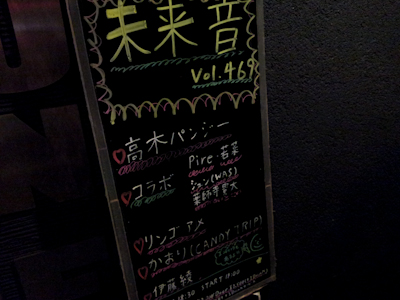 未来音
Vol.469
高木パンジー
コラボ
Pire.若菜
ジョン(WAS)
薬師寺寛大
リンゴアメ
かおり(CANDY TRIP)
伊藤綾
18:30 START 19:00